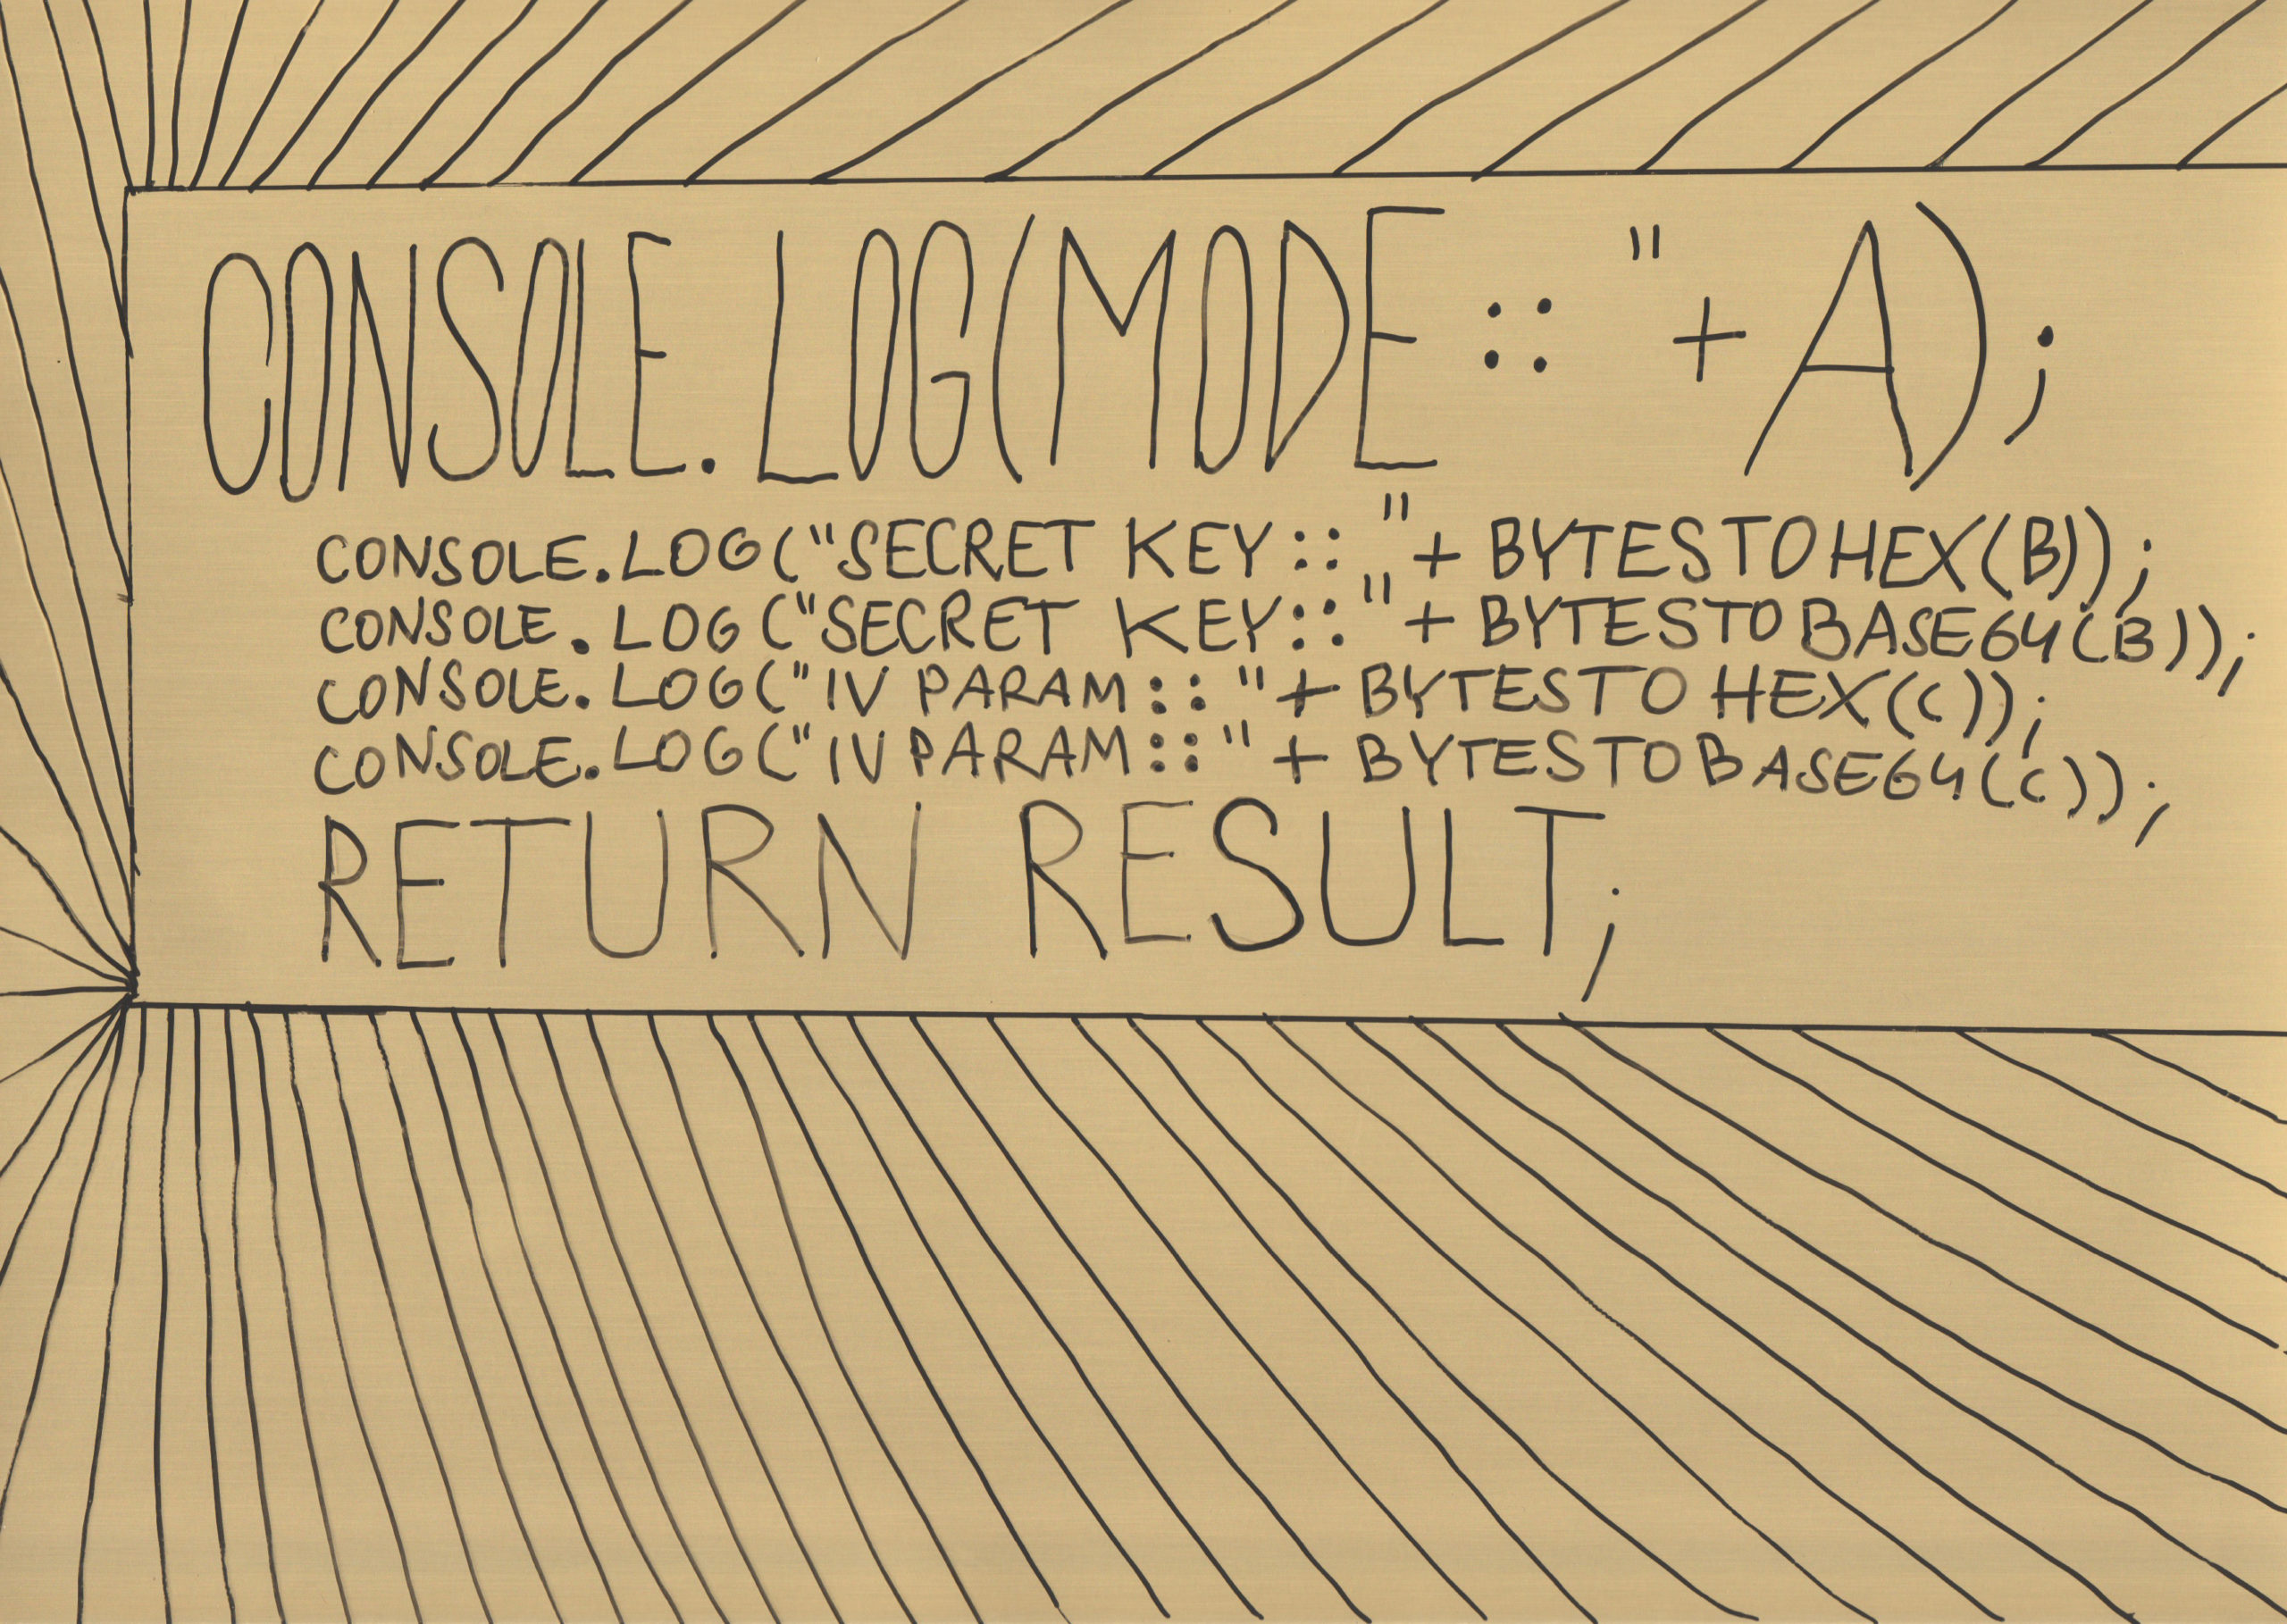 CONSOLE.LOG(MODE :: "+A);
CONSOLE.LOG("SECRET KEY::"+ BYTESTOHEX(B));
CONSOLE.LOG("SECRET KEY::"+ BYTESTOBASE64(B));
CONSOLE.LOG("IV PARAM::"+ BYTESTOHEX(C));
CONSOLE.LOG("IV PARAM::"+ BYTESTOBASE64(C));
RETURN RESULT;